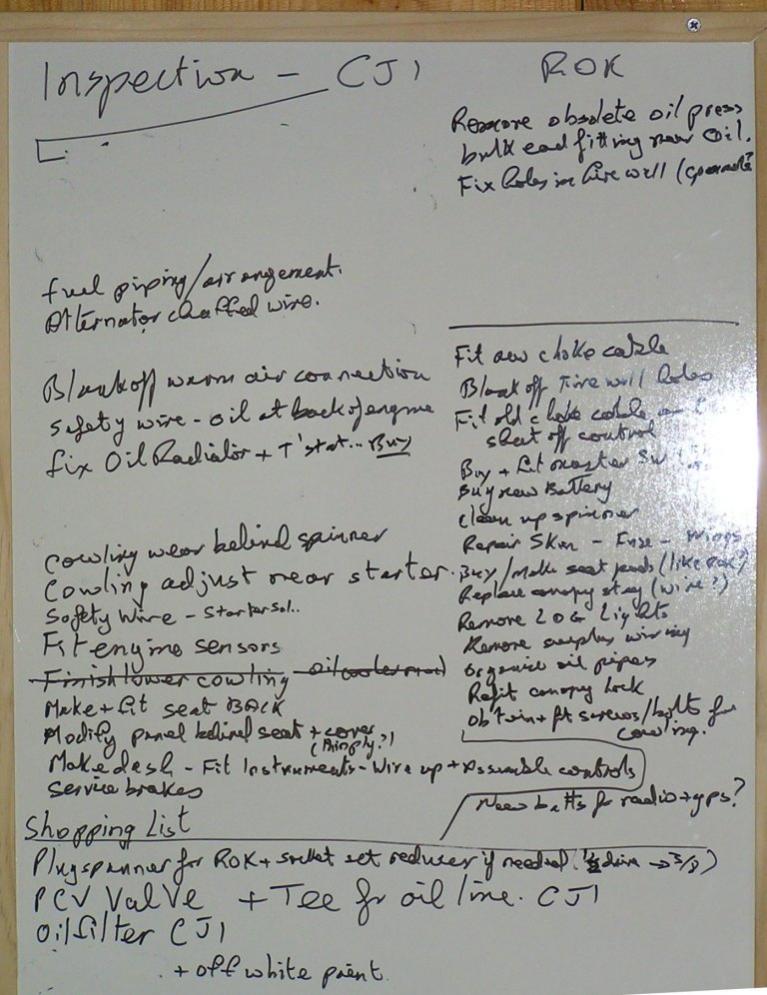 Inspection - CJ1
fuel piping/arrangement.
Alternator chaffed wire.
Blank off warm air connection
Safety wire - oil at back of engine
fix Oil Radiator + T'stat... Buy
Cowling wear behind spinner
Cowling adjust near starter.
Safety Wire - Starter Sol..
Fit engine sensors
Finish lower cowling - oil cooler mod
Make + fit seat BACK
Modify panel behind seat + cover
Make desh - Fit Instruments - Wire up + Assemble controls
Service brakes
ROK
Remove obsolete oil press
bulk ead fitting near Oil.
Fix holes in fire well (
Fit new choke cable
Blank off Fire well holes
Fit old choke cable
shut off control
Buy + fit master Sw
Buy new Battery
Clean up spinner
Repair Skin - Fuse - Wings
Buy/Make seat pads (like ROK?)
Replace canopy stay (wire?)
Remove LOG Lights
Remove surplus wiring
Organise oil pipes
Refit canopy lock
Obtain + fit screws/bolts for
cowling.
New batts for radio + gps?
Shopping List
Plug spanner for ROK + socket set reducer if needed. (1/2 drive → 3/8)
PCV Valve + Tee for oil line. CJ1
Oil filter CJ1
+ off white paint.